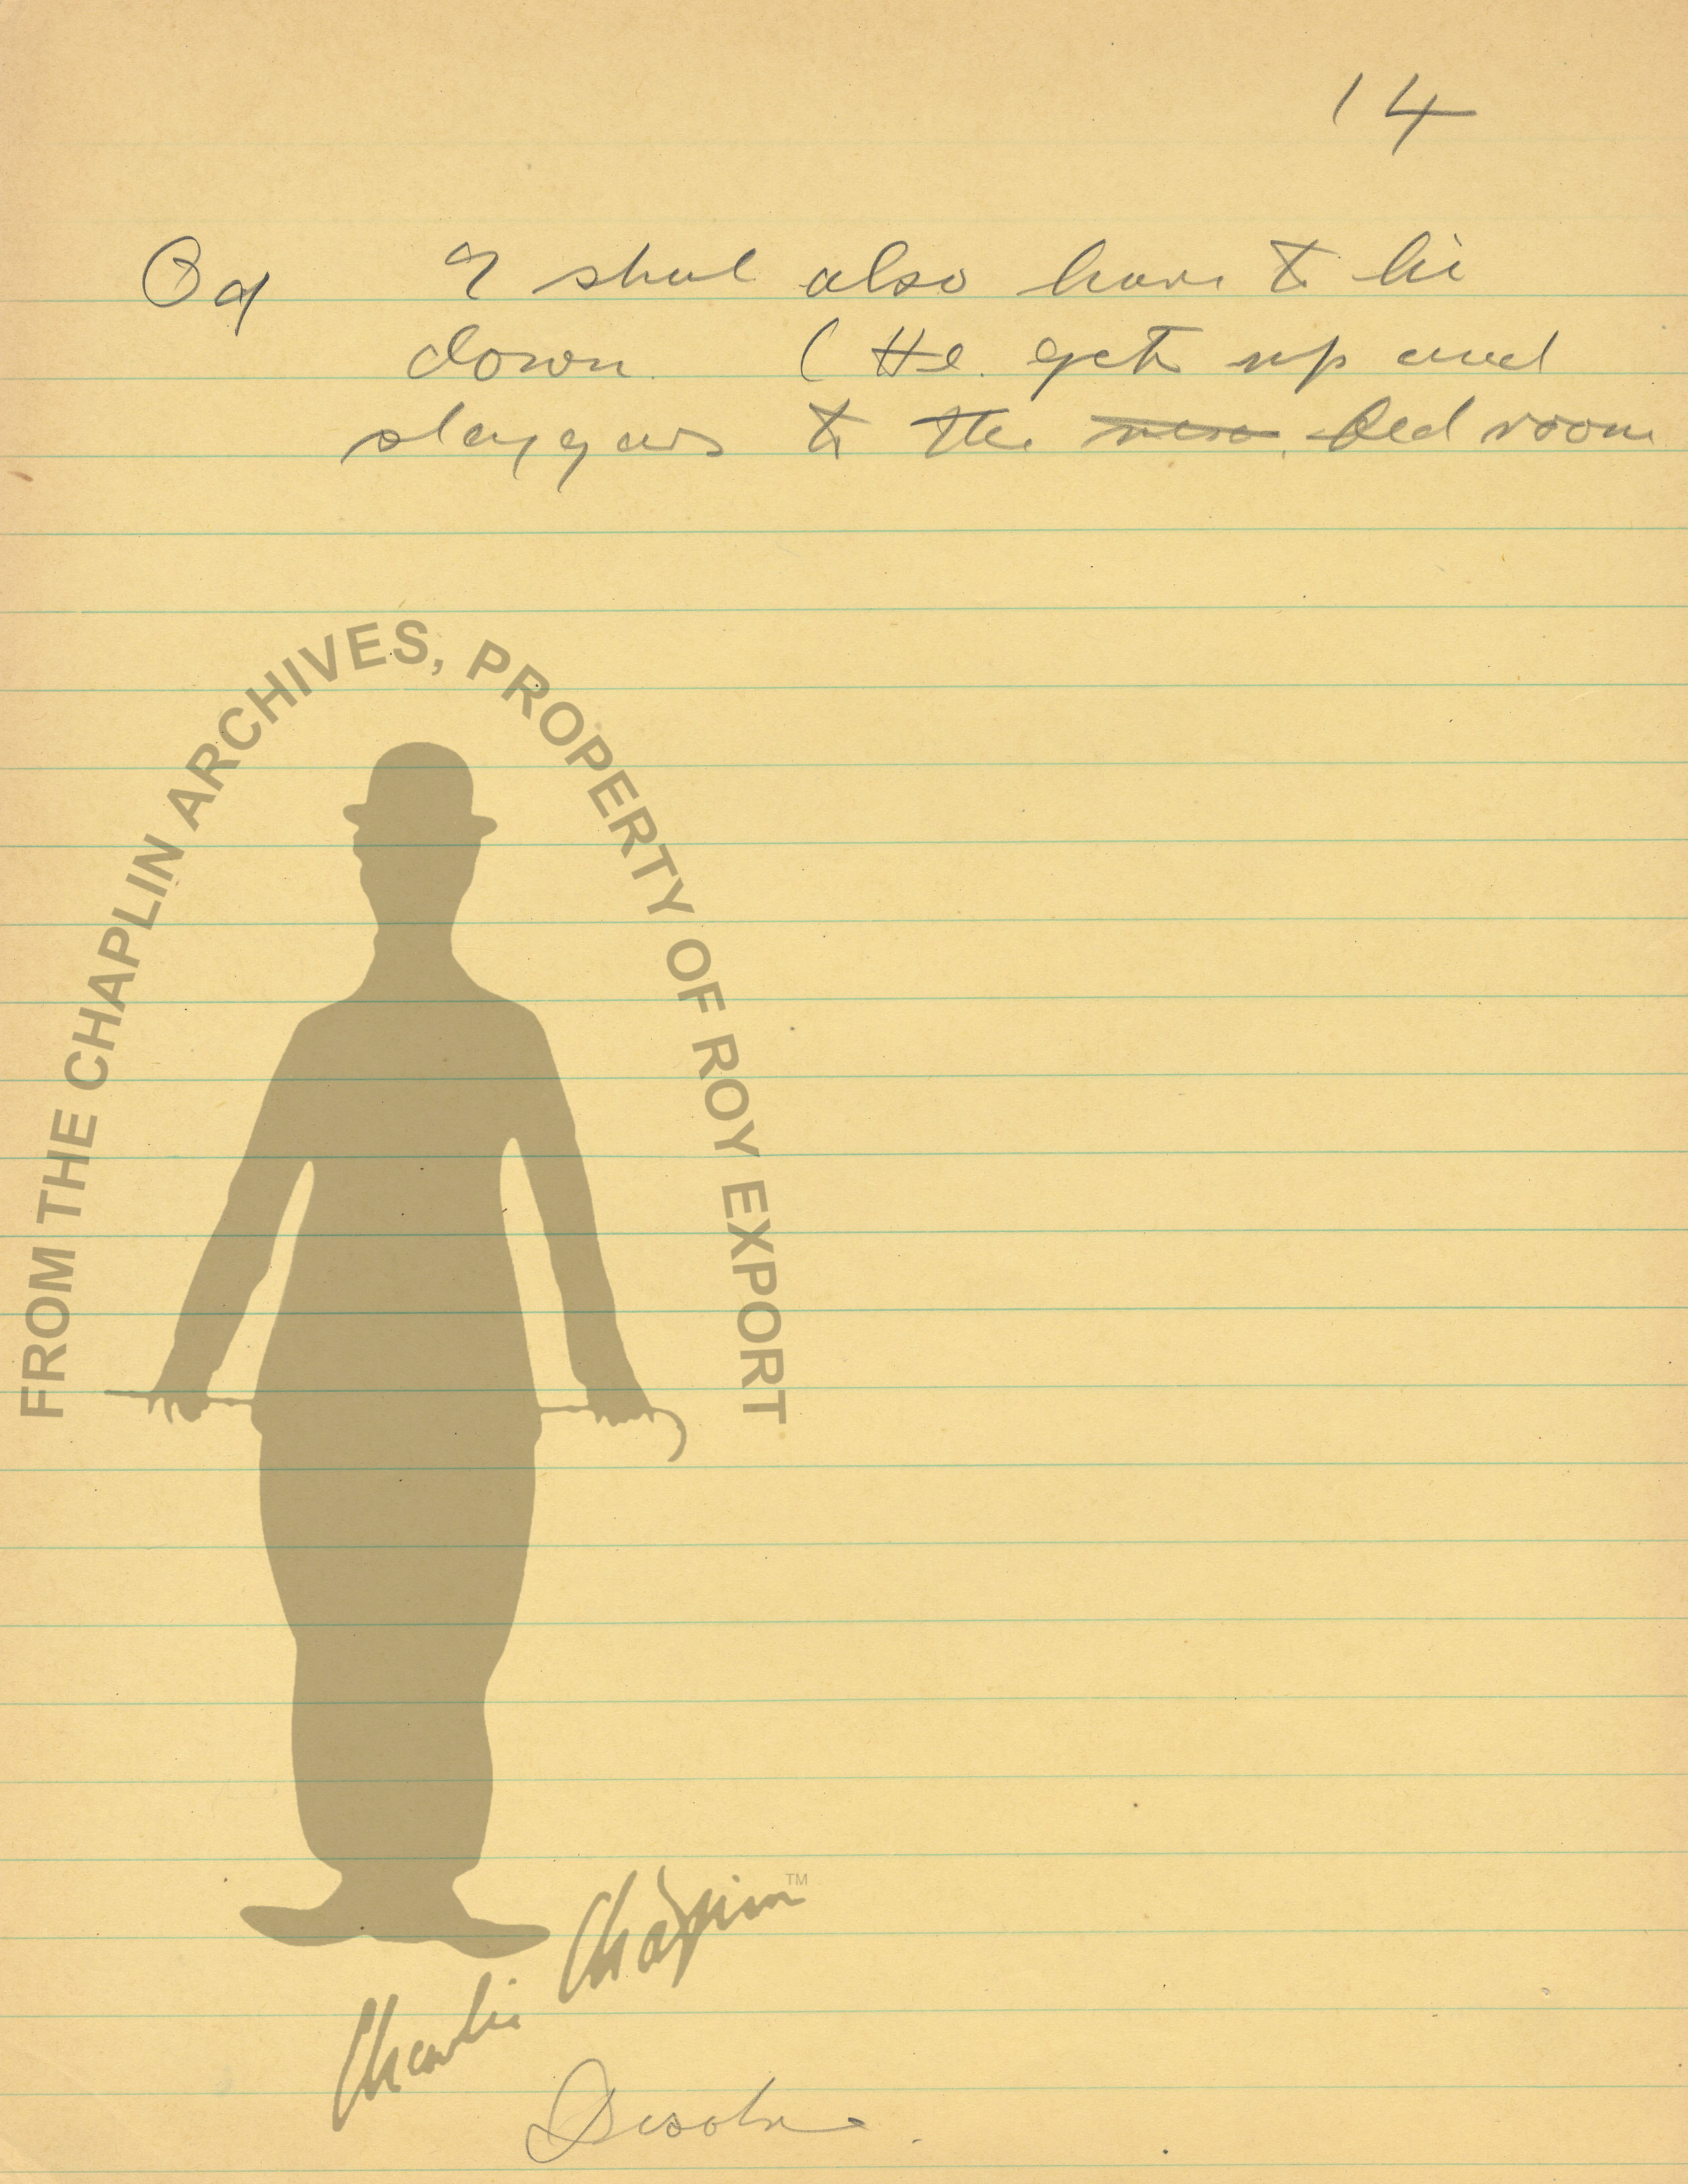 14
I shal also have to lie
down. (He gets up and
staggers to the bed room
FROM THE CHAPLIN ARCHIVES, PROPERTY OF ROY EXPORT
Charlie Chaplin TM
Disolve.